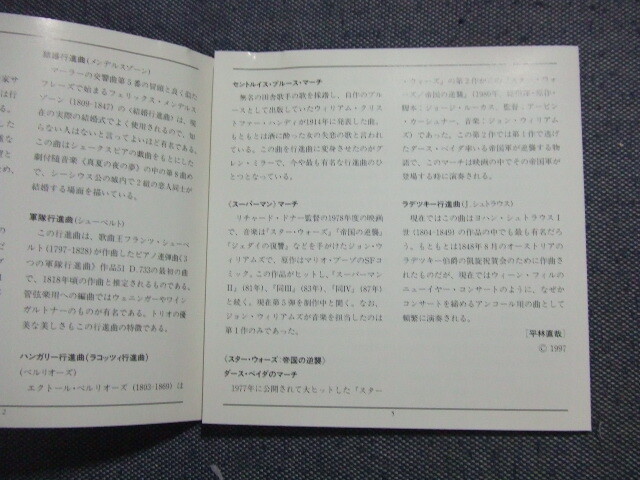 結婚行進曲(メンデルスゾーン)
マーラーの交響曲第5番の冒頭と良く似た
フレーズで始まるフェリックス・メンデルス
ゾーン(1809-1847)の《結婚行進曲》は、現
在の実際の結婚式でよく使用されるので、知
らない人はないと言ってよいほど有名である。
この曲はシェークスピアの戯曲をもとにした
劇付随音楽《真夏の夜の夢》の中の第9曲め
で、シーシウス公の城内で2組の恋人同士が
結婚する場面を描いている。
軍隊行進曲(シューベルト)
この行進曲は、歌曲王フランツ・シューベ
ルト(1797-1828)が作曲したピアノ連弾曲《3
つの軍隊行進曲》作品51 D.733の最初の曲
で、1818年頃の作曲と推定されるものである。
管弦楽用への編曲ではウェニンガーやワイン
ガルトナーのものが有名である。トリオの優
美な美しさもこの行進曲の特徴である。
ハンガリー行進曲(ラコッツィ行進曲)
(ベルリオーズ)
エクトール・ベルリオーズ(1803-1869)は
2
セントルイス・ブルース・マーチ
無名の田舎歌手の歌を採譜し、自作のブル
ースとして出版していたウィリアム・クリス
トファー・ハンディが1914年に発表した曲。
もともとは酒に酔った女の失恋の歌と言われ
ている。この曲を行進曲に変身させたのがグ
レン・ミラーで、今や最も有名な行進曲のひ
とつとなっている。
《スーパーマン》マーチ
リチャード・ドナー監督の1978年度の映画
で、音楽は「スター・ウォーズ」「帝国の逆襲」
「ジェダイの復讐」などを手がけたジョン・ウ
ィリアムズで、原作はマリオ・プーゾのSFコ
ミック。この作品がヒットし、「スーパーマン
II」(81年)、「同III」(83年)、「同IV」(87年)
と続く。現在第5弾を制作中と聞く。なお、
ジョン・ウィリアムズが音楽を担当したのは
第1作のみであった。
《スター・ウォーズ/帝国の逆襲》
ダース・ベイダのマーチ
1977年に公開されて大ヒットした「スター
・ウォーズ」の第2作がこの「スター・ウォ
ーズ/帝国の逆襲」(1980年、総指揮・原作・
脚本：ジョージ・ルーカス、監督：アービン・
カーシュナー、音楽：ジョン・ウィリアム
ズ)であった。この第2作では第1作で逃げ
たダース・ベイダ率いる帝国軍が逆襲する物
語で、このマーチは映画の中でその帝国軍が
登場する時に演奏される。
ラデツキー行進曲(J.シュトラウス)
現在ではこの曲はヨハン・シュトラウス1
世(1804-1849)の作品の中でも最も有名だろ
う。もともとは1848年8月のオーストリアの
ラデツキー伯爵の凱旋祝賀会のために作曲さ
れたものだが、現在ではウィーン・フィルの
ニューイヤー・コンサートのように、なぜか
コンサートを締めるアンコール用の曲として
頻繁に演奏される。
[平林直哉]
© 1997